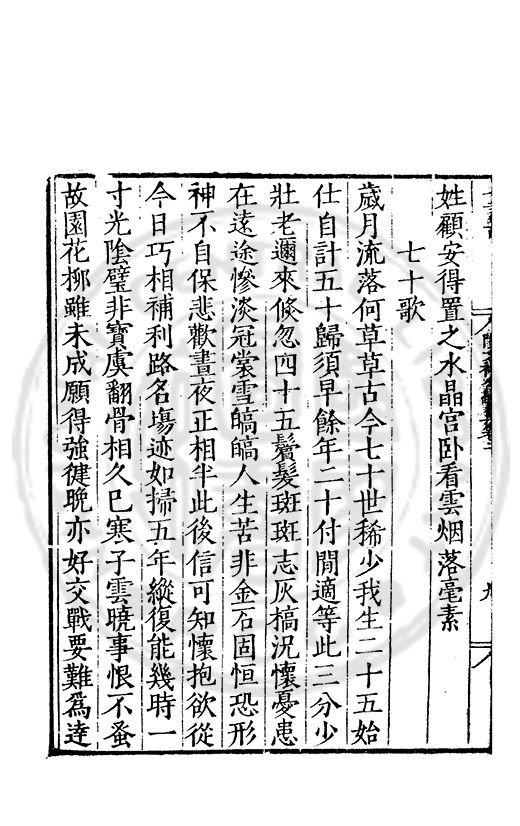 姓顧安得置之水晶宫卧看雲烟落毫素
七十歌
歲月流落何草草古今七十世稀少我生二十五始
仕自計五十歸須早餘年二十付閒適等此三分少
壯老邇來倏忽四十五鬢髮斑斑志灰槁況懷憂患
在遠途慘淡冠裳雪皜皜人生苦非金石固恒恐形
神不自保悲歡晝夜正相半此後信可知懷抱欲從
今日巧相補利路名塲迹如掃五年縱復能幾時一
寸光陰璧非寶虞翻骨相久巳寒子雲曉事恨不蚤
故園花柳雖未成願得強健晚亦好交戰要難爲逹